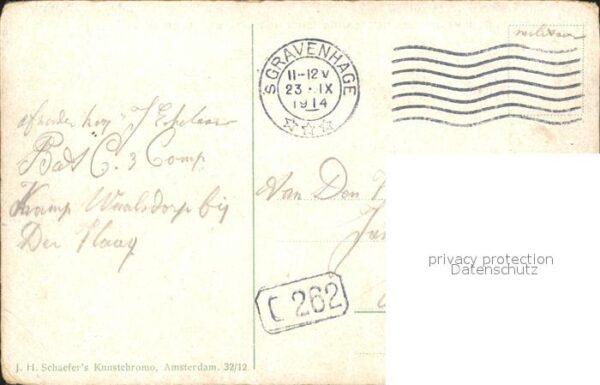 militair
'S GRAVENHAGE
11-12 V
23 · IX
1914
afzender
Bat C. 3 Comp
Kamp Waalsdorp bij
Den Haag
Van Den
C 262
privacy protection
Datenschutz
J. H. Schaefer's Kunstchromo, Amsterdam. 32/12